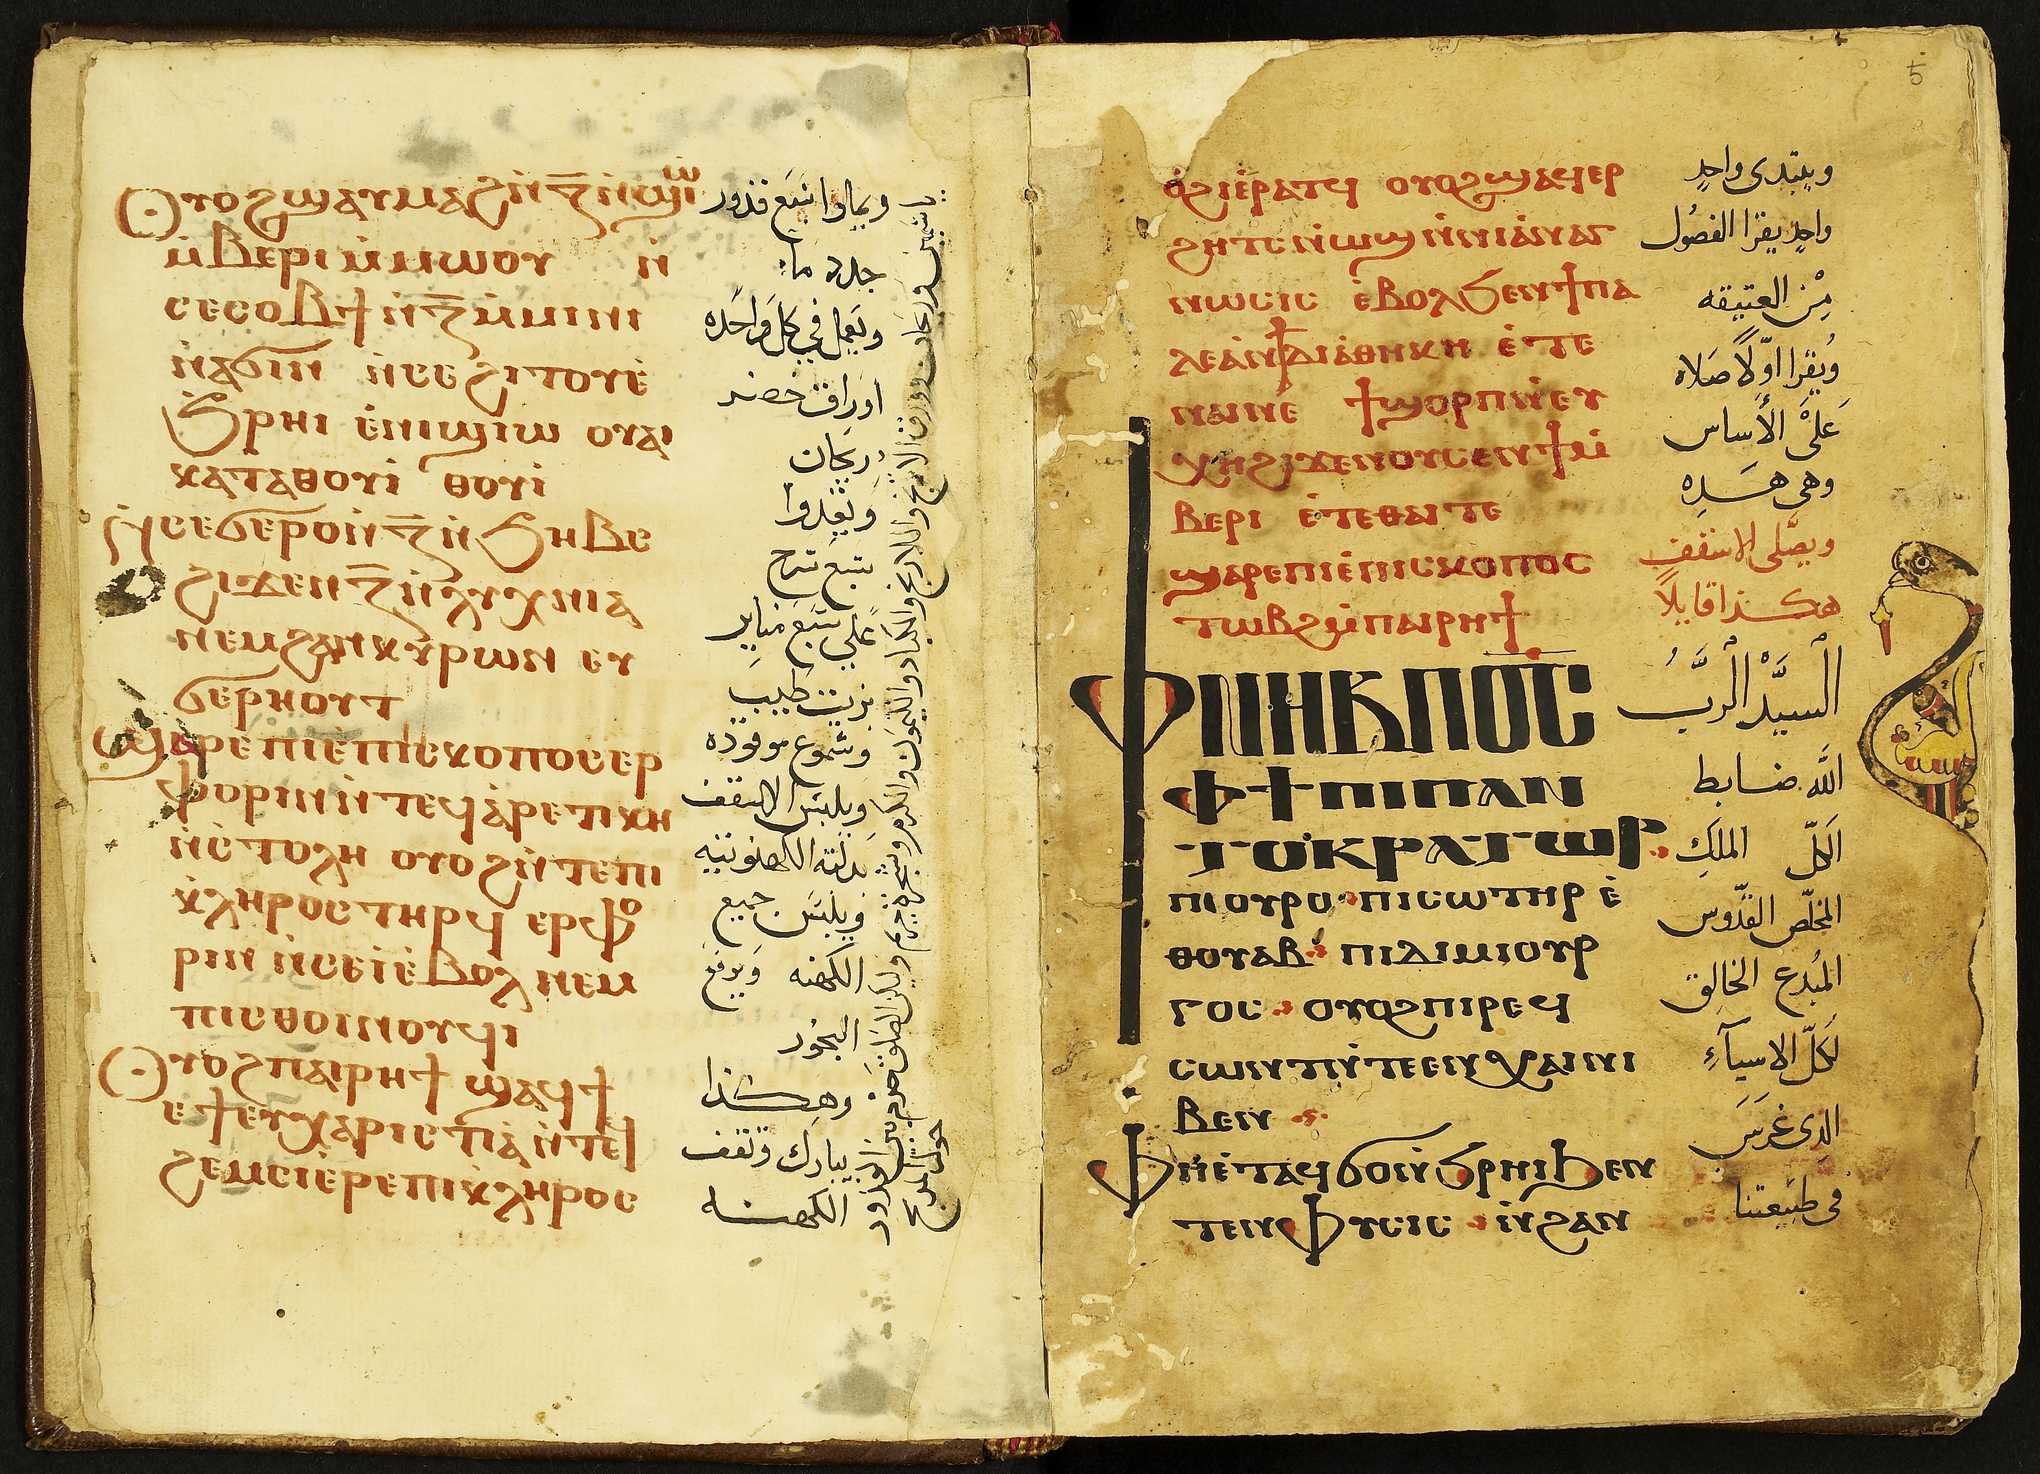 Ⲟⲩⲟϩ ϣⲁⲩⲙⲁϩ ⲛ̀ⲍ̅ ⲛ̀
ⲙ̀ⲃⲉⲣⲓ ⲙ̀ⲙⲱⲟⲩ ⲛ̀
ⲥⲉⲥⲟⲃϯ ⲛ̀ⲍ̅ ⲙ̀ⲙⲓⲛⲓ
ⲛ̀ⲁϭⲓⲛ ⲛ̀ⲥⲉϩⲓⲧⲟⲩ ⲉ̀
ϧⲣⲏⲓ ⲉ̀ⲛⲓϣⲓⲱ ⲟⲩⲁⲓ
ⲕⲁⲧⲁ ⲑⲟⲩⲓ̀ ⲑⲟⲩⲓ̀
ⲛ̀ⲥⲉϭⲉⲣⲟ ⲛ̀ⲍ̅ ⲛ̀ϧⲏⲃⲥ
ϩⲓϫⲉⲛ ⲍ̅ ⲛ̀ⲗⲩⲭⲛⲓⲁ
ⲛⲉⲙ ϩⲁⲛⲕⲩⲣⲱⲛ ⲉⲩ
ϭⲉⲣⲏⲟⲩⲧ
ϣⲁⲣⲉ ⲡⲓⲉ̀ⲡⲓⲥⲕⲟⲡⲟⲥ ⲉⲣ
ⲫⲟⲣⲓⲛ ⲛ̀ⲧⲉϥ
ⲛ̀ⲥⲧⲟⲗⲏ ⲟⲩⲟϩ ⲛ̀ⲧⲉ ⲡⲓ
ⲕ̀ⲗⲏⲣⲟⲥ ⲧⲏⲣϥ ⲉⲣⲫⲟ
ⲣⲓⲛ ⲛ̀ⲥⲉⲓ̀ ⲉ̀ⲃⲟⲗ ⲛⲉⲙ
ⲡⲓⲥⲑⲟⲓⲛⲟⲩϥⲓ
Ⲟⲩⲟϩ ⲡⲁⲓⲣⲏϯ ϣⲁϥϯ
ⲉϯⲉⲩⲭⲁⲣⲓⲥⲧⲓⲁ̀ ⲛ̀ⲧⲉ
ϩⲉⲙⲥⲓ ⲉ̀ⲣⲉ ⲡⲓⲕ̀ⲗⲏⲣⲟⲥ
ويملوا سبع قدور
جدد ما
ويعمل في كل واحده
اوراق خضر
ريحان
ويقدوا
سبع سرج
على سبع مناير
بزيت طيب
وشموع موقوده
ويلبس الاسقف
بدلته الكهنوتيه
ويلبس جميع
الكهنه ويرفع
البخور
وهكذا
يبارك وتقف
الكهنه
ⲟ̀ϩⲓ ⲉ̀ⲣⲁⲧϥ ⲟⲩⲟϩ ϣⲁϥⲉⲣ
ϩⲏⲧⲥ ⲛ̀ⲱϣ ⲛ̀ⲛⲓⲁ̀ⲛⲁⲅ
ⲛⲱⲥⲓⲥ ⲉ̀ⲃⲟⲗϧⲉⲛ ϯⲡⲁ
ⲗⲉⲁ̀ⲛϯⲇⲓⲁ̀ⲑⲏⲕⲏ ⲉ̀ⲧⲉ
ⲛⲁⲓ ⲛⲉ ϯϣⲟⲣⲡ ⲛ̀ⲉⲩ
ⲭⲏ ϩⲓϫⲉⲛ ⲟⲩⲥⲉⲛϯ ⲙ̀
ⲃⲉⲣⲓ ⲉ̀ⲧⲉ ⲑⲁⲓ ⲧⲉ
ϣⲁⲣⲉ ⲡⲓⲉ̀ⲡⲓⲥⲕⲟⲡⲟⲥ
ⲧⲱⲃϩ ⲙ̀ⲡⲁⲓⲣⲏϯ
ⲪⲚⲎⲂ ⲠⲞ̅Ⲥ̅
ⲫϯ ⲡⲓⲡⲁⲛ
ⲧⲟⲕⲣⲁⲧⲱⲣ
ⲡⲓⲟⲩⲣⲟ ⲡⲓⲥⲱⲧⲏⲣ ⲉ̀
ⲑⲟⲩⲁⲃ ⲡⲓⲇⲓⲙⲓⲟⲩⲣ
ⲅⲟⲥ ⲟⲩⲟϩ ⲡⲓⲣⲉϥ
ⲥⲱⲛⲧ ⲛ̀ⲧⲉ ⲉⲛⲭⲁⲓ ⲛⲓ
ⲃⲉⲛ
Ⲫⲏ ⲉ̀ⲧⲁϥϭⲟ ⲛ̀ϧⲣⲏⲓ ϧⲉⲛ
ⲧⲉⲛⲫⲩⲥⲓⲥ ⲛ̀ϩⲁⲛ
ويبتدى واحد
واحد يقرا الفصول
من العتيقه
ويقرا اوّلاً صلاه
على الأساس
وهى هذه
ويصلى الاسقف
هكذا قايلاً
السيّد الرب
الله ضابط
الكلّ الملك
المخلّص القدّوس
المبدع الخالق
لكل الاشيآء
الذى غرس
فى طبيعتنا
5